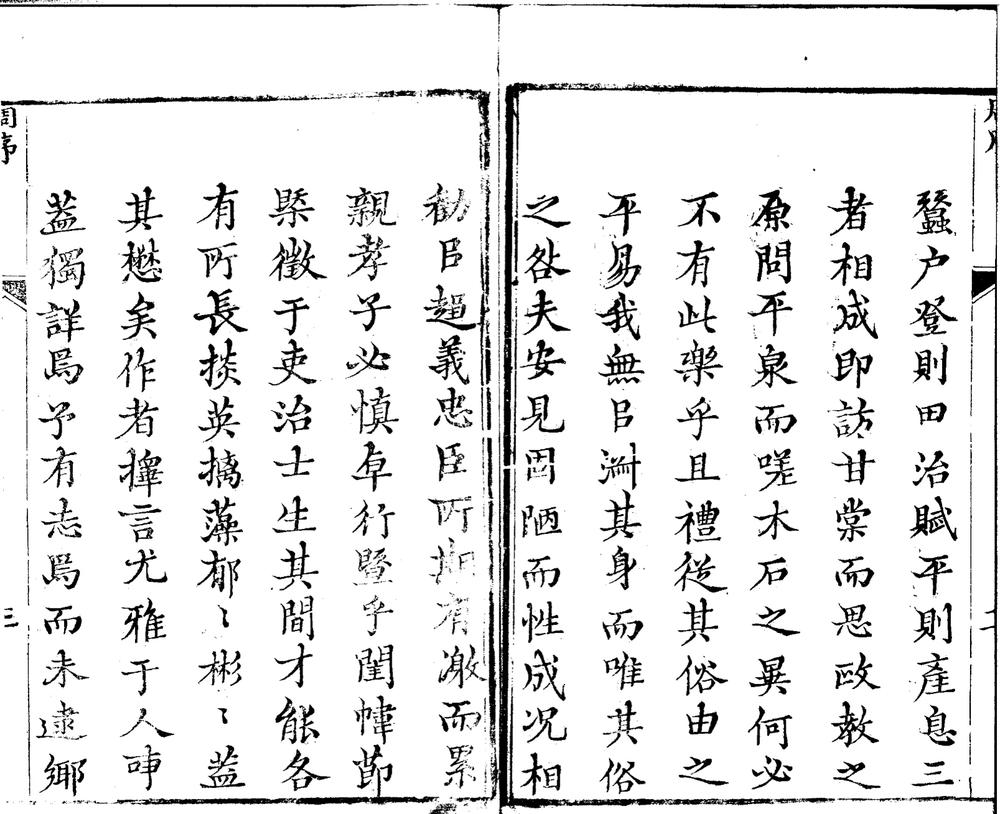 蠶户登則田治賦平則產息三
者相成即訪甘棠而思政教之
原問平泉而嗟木石之異何必
不有此樂乎且禮從其俗由之
平易我無㠯淋其身而唯其俗
之咎夫安見固陋而性成况相
勸㠯趨義忠臣所期有激而累
親孝子必慎卓行暨乎閨幃節
槩徵于吏治士生其間才能各
有所長掞英摛藻郁〻彬〻葢
其懋矣作者擇言尤雅于人事
葢獨詳焉予有志焉而未逮鄉
周序
三